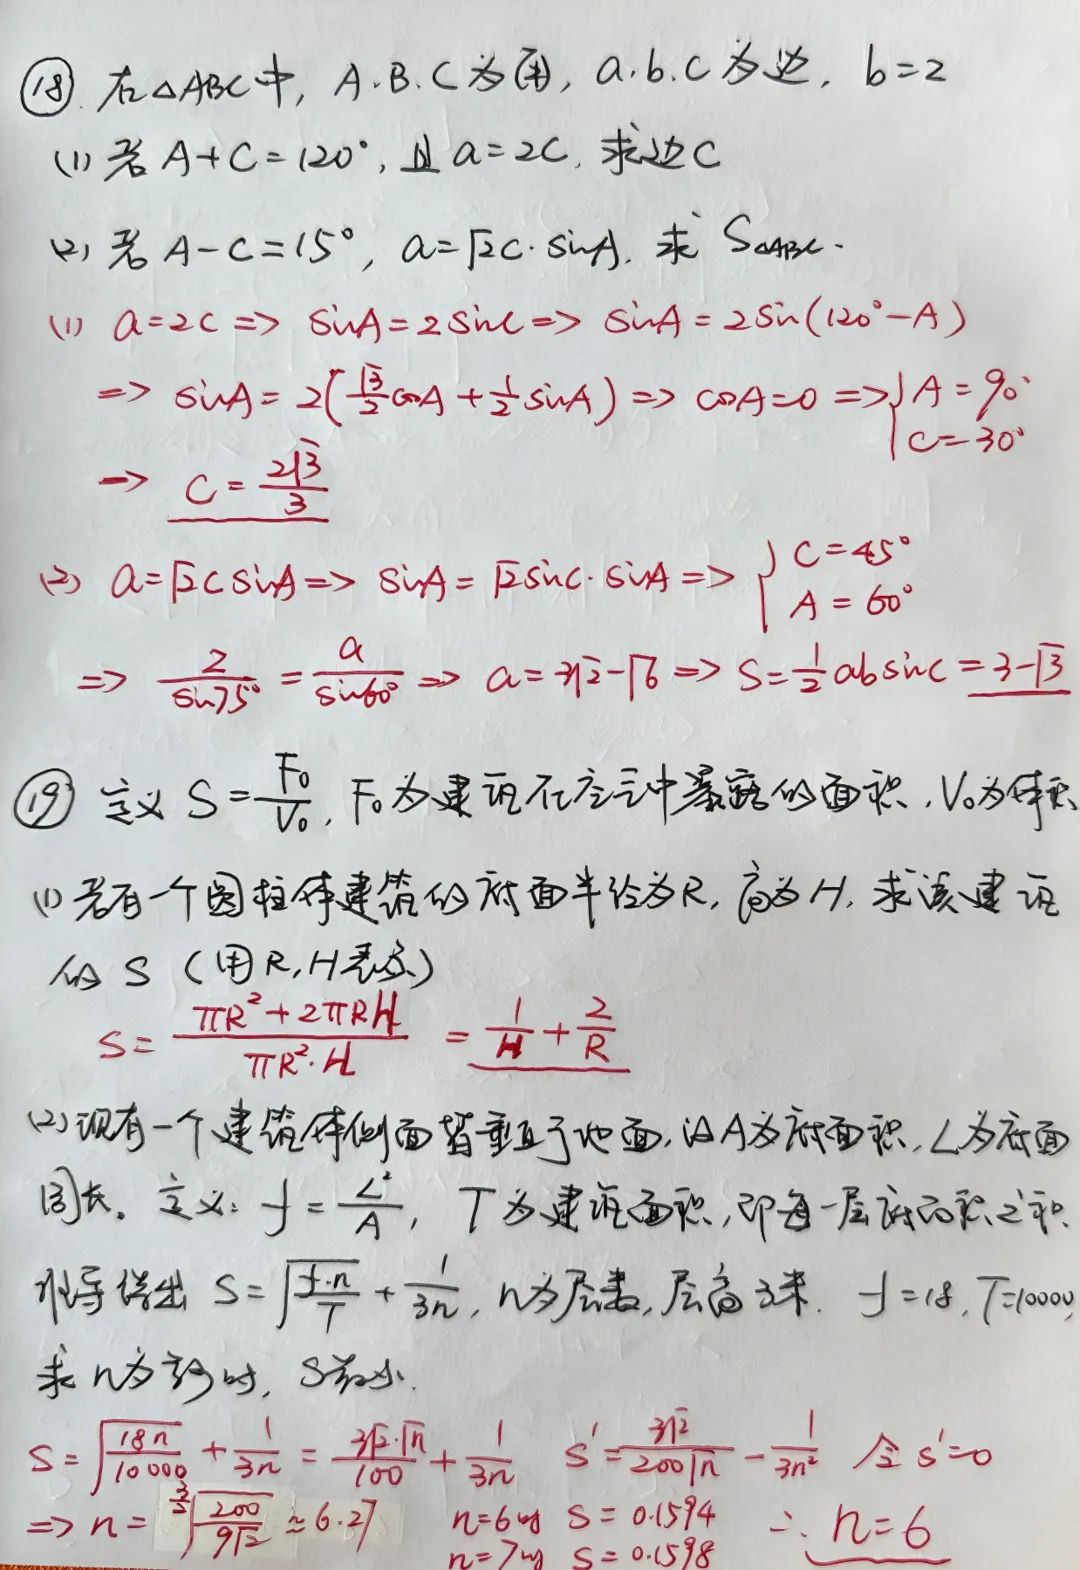 ⑱. 在△ABC中, A.B.C为角, a.b.c为边, b=2
(1) 若 A+C=120°, 且 a=2c, 求边c
(2) 若 A-C=15°, a=√2c·sinA, 求 S△ABC.
(1) a=2c => sinA=2sinC => sinA=2sin(120°-A)
=> sinA=2(√3/2 cosA+1/2 sinA) => cosA=0 => { A=90° C=30°
=> c=2√3/3
(2) a=√2c sinA => sinA=√2sinC·sinA => { C=45° A=60°
=> 2/sin75°=a/sin60° => a=3√2-√6 => S=1/2 absinC=3-√3
⑲ 定义 S=F₀/V₀, F₀为建筑在空气中暴露的面积, V₀为体积
(1) 若有一个圆柱体建筑的底面半径为R, 高为H, 求该建筑
的 S (用R,H表示)
S=(πR²+2πRH)/(πR²·H)=1/H+2/R
(2) 现有一个建筑体侧面皆垂直于地面, 设A为底面积, L为底面
周长。定义: f=L²/A, T为建筑面积, 即每一层底面积之和
推导得出 S=√(f·n/T)+1/3n, n为层数, 层高3米. f=18, T=10000,
求 n为多少时, S最小.
S=√(18n/10000)+1/3n=3√2·√n/100+1/3n S'=3√2/200√n-1/3n² 令 s'=0
=> n=∛²√(200/9√2)≈6.27 n=6时 S=0.1594 ∴ n=6
n=7时 S=0.1598